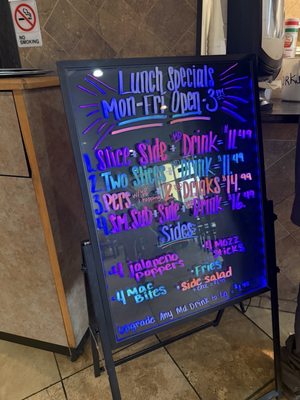 NO SMOKING
Lunch Specials
Mon-Fri Open - 3pm
1. Slice + Side + MD Drink = $
2. Two Slices + Drink = $ .49
3. Pers 2 Drinks = $14.99
4. Sm. Sub + Side + Drink = $16.49
Sides
4 Jalapeno Poppers
4 Mozz Sticks
4 Mac Bites
Fries
Side Salad
Upgrade Any Md Drink to Lg